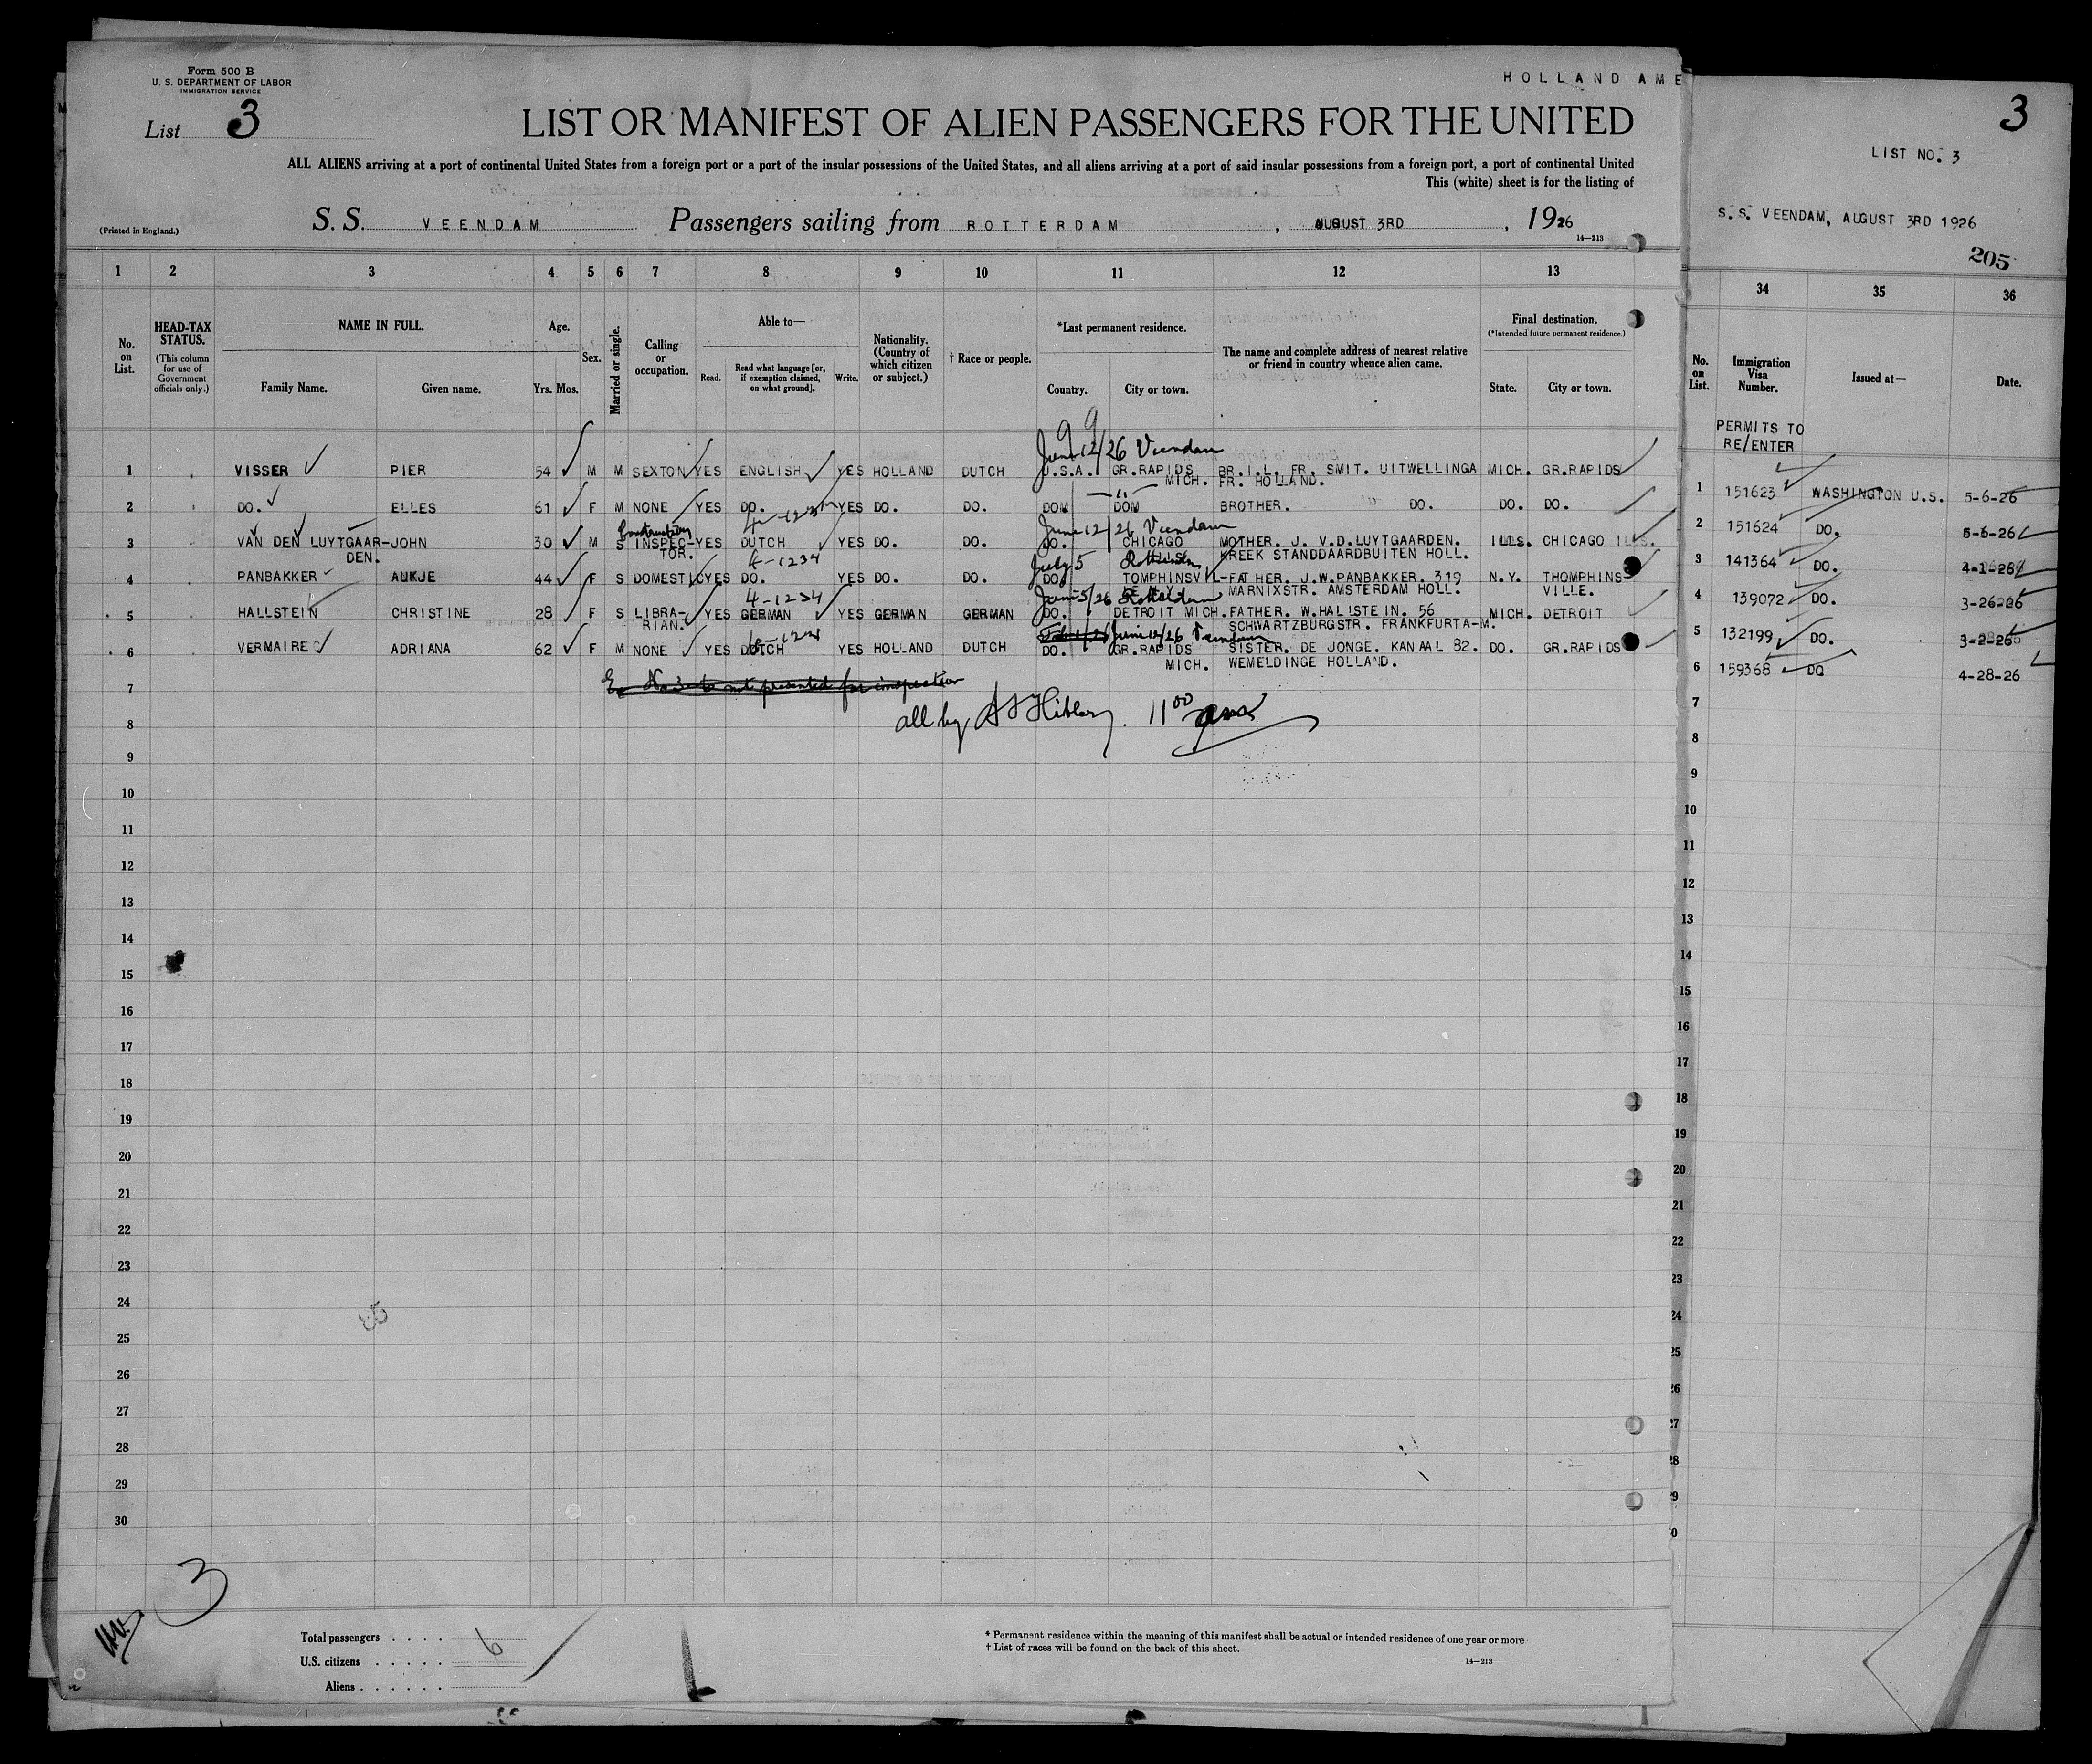 Form 500 B
U. S. DEPARTMENT OF LABOR
IMMIGRATION SERVICE
HOLLAND AME
List 3
LIST OR MANIFEST OF ALIEN PASSENGERS FOR THE UNITED
ALL ALIENS arriving at a port of continental United States from a foreign port or a port of the insular possessions of the United States, and all aliens arriving at a port of said insular possessions from a foreign port, a port of continental United
This (white) sheet is for the listing of
(Printed in England.)
S. S. VEENDAM Passengers sailing from ROTTERDAM , AUGUST 3RD , 1926
14—213
1 2 3 4 5 6 7 8 9 10 11 12 13
No. on List.
HEAD-TAX STATUS.
(This column for use of Government officials only.)
NAME IN FULL.
Family Name. Given name.
Age.
Yrs. Mos.
Sex.
Married or single.
Calling or occupation.
Able to—
Read. Read what language [or, if exemption claimed, on what ground]. Write.
Nationality. (Country of which citizen or subject.)
† Race or people.
*Last permanent residence.
Country. City or town.
The name and complete address of nearest relative or friend in country whence alien came.
Final destination.
(*Intended future permanent residence.)
State. City or town.
June 12/26 Veendam
1 VISSER PIER 54 M M SEXTON YES ENGLISH YES HOLLAND DUTCH U.S.A. GR.RAPIDS BR.I.L. FR. SMIT. UITWELLINGA MICH. GR.RAPIDS
MICH. FR. HOLLAND.
—"—
2 DO. ELLES 61 F M NONE YES DO. YES DO. DO. DOM DOM BROTHER. DO. DO. DO.
Construction June 12/26 Veendam
3 VAN DEN LUYTGAAR- JOHN 30 M S INSPEC- YES DUTCH YES DO. DO. DO. CHICAGO MOTHER. J. V.D.LUYTGAARDEN. ILLS. CHICAGO ILLS.
DEN. TOR. KREEK STANDDAARDBUITEN HOLL.
4-1234 July 5
4 PANBAKKER AUKJE 44 F S DOMESTIC YES DO. YES DO. DO. DO. TOMPHINSVIL- FATHER. J.W.PANBAKKER. 319 N.Y. THOMPHINS
MARNIXSTR. AMSTERDAM HOLL. VILLE.
4-1234 June 5/26 Rotterdam
5 HALLSTEIN CHRISTINE 28 F S LIBRA- YES GERMAN YES GERMAN GERMAN DO. DETROIT MICH. FATHER. W.HALLSTEIN. 56 MICH. DETROIT
RIAN. SCHWARTZBURGSTR. FRANKFURTA-M.
June 12/26 Veendam
6 VERMAIRE ADRIANA 62 F M NONE YES DUTCH YES HOLLAND DUTCH DO. GR.RAPIDS SISTER. DE JONGE. KANAAL 82. DO. GR.RAPIDS
MICH. WEMELDINGE HOLLAND.
7
not presented for inspection
all by 11 00 am
8
9
10
11
12
13
14
15
16
17
18
19
20
21
22
23
24
25
26
27
28
29
30
3
Total passengers . . . . 6
U.S. citizens . . . . .
Aliens . . . . . .
* Permanent residence within the meaning of this manifest shall be actual or intended residence of one year or more
† List of races will be found on the back of this sheet.
14—213
3
LIST NO. 3
S. S. VEENDAM, AUGUST 3RD 1926
205
34 35 36
No. on List.
Immigration Visa Number.
Issued at—
Date.
PERMITS TO
RE/ENTER
1 151623 WASHINGTON U.S. 5-6-26
2 151624 DO. 5-6-26
3 141364 DO. 4-1-26
4 139072 DO. 3-26-26
5 132199 DO. 3-2-26
6 159368 DO 4-28-26
7
8
9
10
11
12
13
14
15
16
17
18
19
20
21
22
23
24
25
26
27
28
29